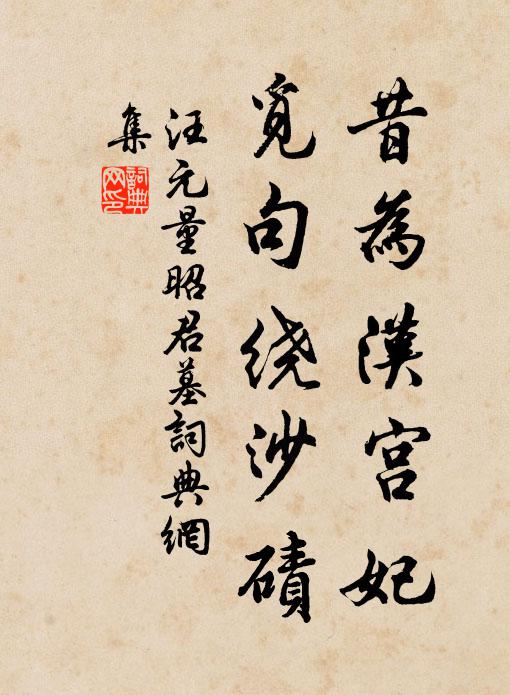 昔為漢宫妃
覓句绕沙磧
汪元量昭君墓詞典網
集
詞典网印